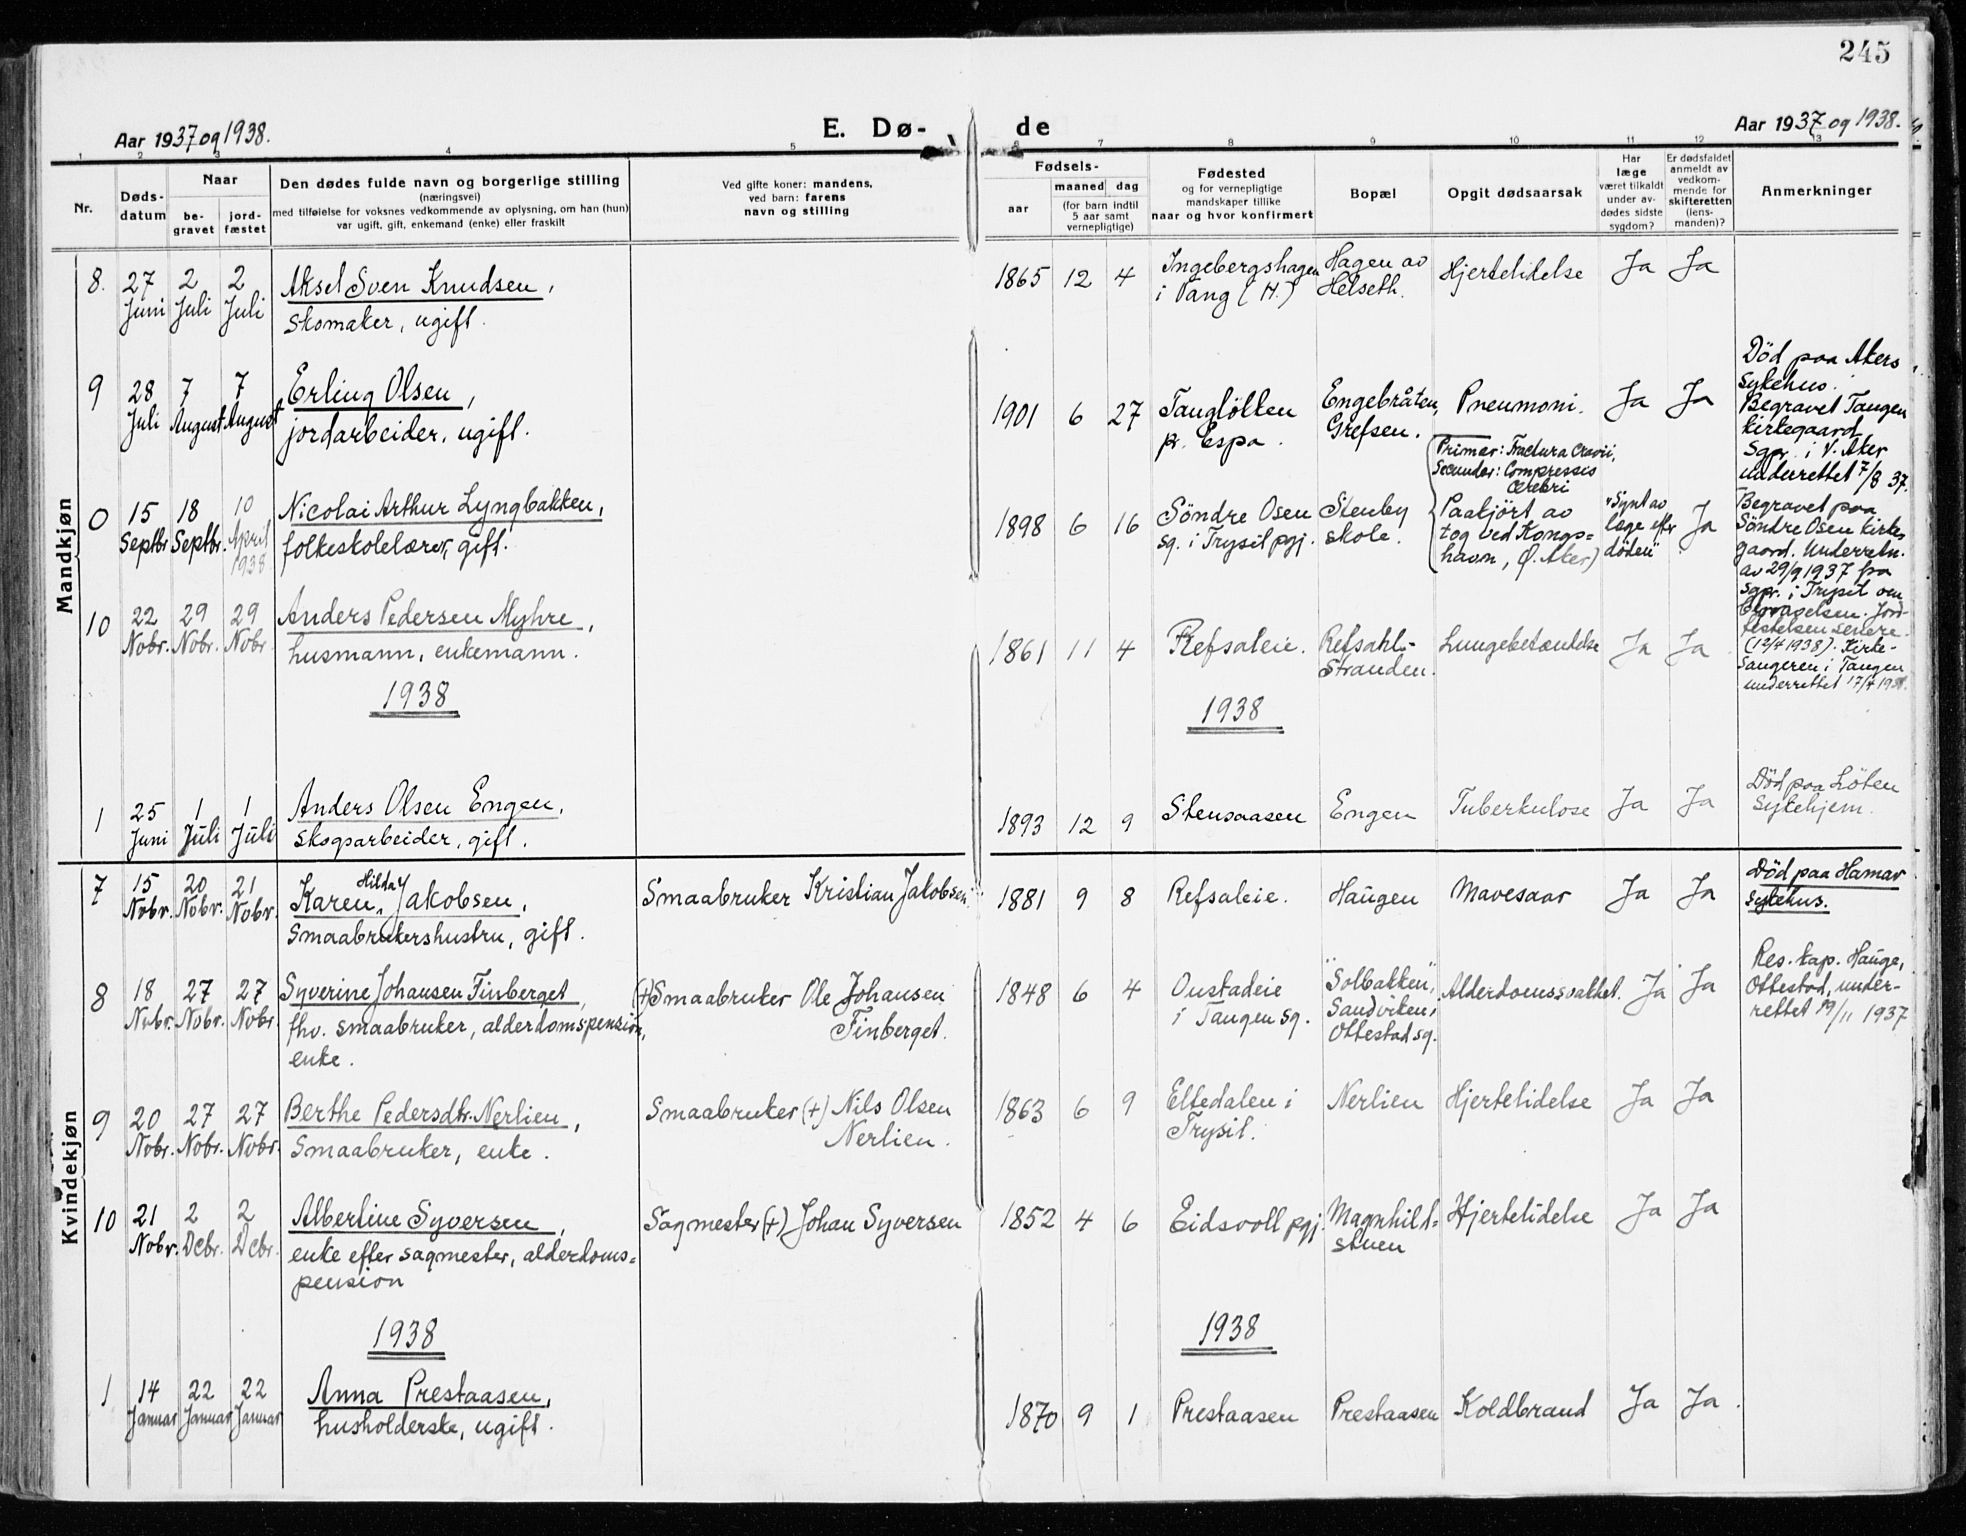 245
Aar 1937 og 1938.
E. Dø-
de
Aar 1937 og 1938.
1 2 3 4 5 6 7 8 9 10 11 12 13
Nr.
Døds-
datum
Naar
be-
gravet
jord-
fæstet
Den dødes fulde navn og borgerlige stilling
(næringsvei)
med tilføielse for voksnes vedkommende av oplysning, om han (hun)
var ugift, gift, enkemand (enke) eller fraskilt
Ved gifte koner: mandens,
ved barn: farens
navn og stilling
Fødsels-
aar
maaned
dag
(for barn indtil
5 aar samt
vernepligtige)
Fødested
og for vernepligtige
mandskaper tillike
naar og hvor konfirmert
Bopæl
Opgit dødsaarsak
Har
læge
været tilkaldt
under av-
dødes sidste
sygdom?
Er dødsfaldet
anmeldt av
vedkom-
mende for
skifteretten
(lens-
manden)?
Anmerkninger
Mandkjøn
8. 27 Juni
2 Juli
2 Juli
Aksel Sven Knudsen,
skomaker, ugift.
1865 12 4
Ingebergshagen
i Vang (H.)
Hagen av
Helseth.
Hjertelidelse
Ja Ja
9 28 Juli
7 August
7 August
Erling Olsen,
jordarbeider, ugift.
1901 6 27
Tangløkken
pr. Espa.
Engebråten,
Grefsen.
Pneumoni.
Ja Ja
Död paa Akers
sykehus.
Begravet Tangen
kirkegaard
Sgpr. i V. Aker
underrettet 7/8 37.
0 15 Septbr.
18 Septbr.
10 April 1938
Nicolai Arthur Lyngbakken,
folkeskolelærer, gift.
1898 6 16
Söndre Osen
sg. i Trysil pgj.
Stenby
skole.
Primær: Fractura Cranii,
Secundær: Compressio
Cerebri
Paakjört av
tog ved Kongs=
havn, Ø. Aker)
"Synt av
læge efter
döden"
Ja
Begravet paa
Söndre Osen kirke
gaard. Underretn.
av 29/9 1937 fra
Sgpr. i Trysil om
Jord-
festelsen senere.
(12/4 1938). Kirke-
sangeren i Tangen
underrettet 17/4 1938.
10 22 Nobr.
29 Nobr.
29 Nobr.
Anders Pedersen Myhre,
husmann, enkemann.
1861 11 4
Refsaleie.
Refsahl-
stranden.
Lungebetændelse
Ja Ja
1938
1938
1 25 Juni
1 Juli
1 Juli
Anders Olsen Engen,
skogsarbeider, gift.
1893 12 9
Stensaasen
Engen
Tuberkulose
Ja Ja
Död paa Löten
Sykehjem.
Kvindekjøn
7 15 Nobr.
20 Nobr.
21 Nobr.
Karen Hilda Jakobsen,
Smaabrukershustru, gift.
Smaabruker Kristian Jakobsen
1881 9 8
Refsaleie.
Haugen
Mavesaar
Ja Ja
Död paa Hamar
sykehus.
8 18 Nobr.
27 Nobr.
27 Nobr.
Syverine Johansen Finberget,
fhv. smaabruker, alderdomspension,
enke.
(+) Smaabruker Ole Johansen
Finberget.
1848 6 4
Oustadeie
i Tangen sg.
"Solbakken",
Sandviken,
Ottestad sg.
Alderdomssvakhet.
Ja Ja
Res. kap. Hauge,
Ottestad, under-
rettet 19/11 1937
9 20 Nobr.
27 Nobr.
27 Nobr.
Berthe Pedersdtr. Nerlien,
Smaabruker, enke.
Smaabruker (+) Nils Olsen
Nerlien.
1863 6 9
Eltedalen i
Trysil.
Nerlien
Hjertelidelse
Ja Ja
10 21 Nobr.
2 Dcbr.
2 Dcbr.
Albertine Syversen,
enke efter sagmester, alderdoms=
pension
Sagmester (+) Johan Syversen
1852 4 6
Eidsvoll pgj.
Magnhild=
stuen
Hjertelidelse
Ja Ja
1938
1938
1 14 Januar
22 Januar
22 Januar
Anna Prestaasen,
husholderske, ugift.
1870 9 1
Prestaasen
Prestaasen
Koldbrand
Ja Ja.